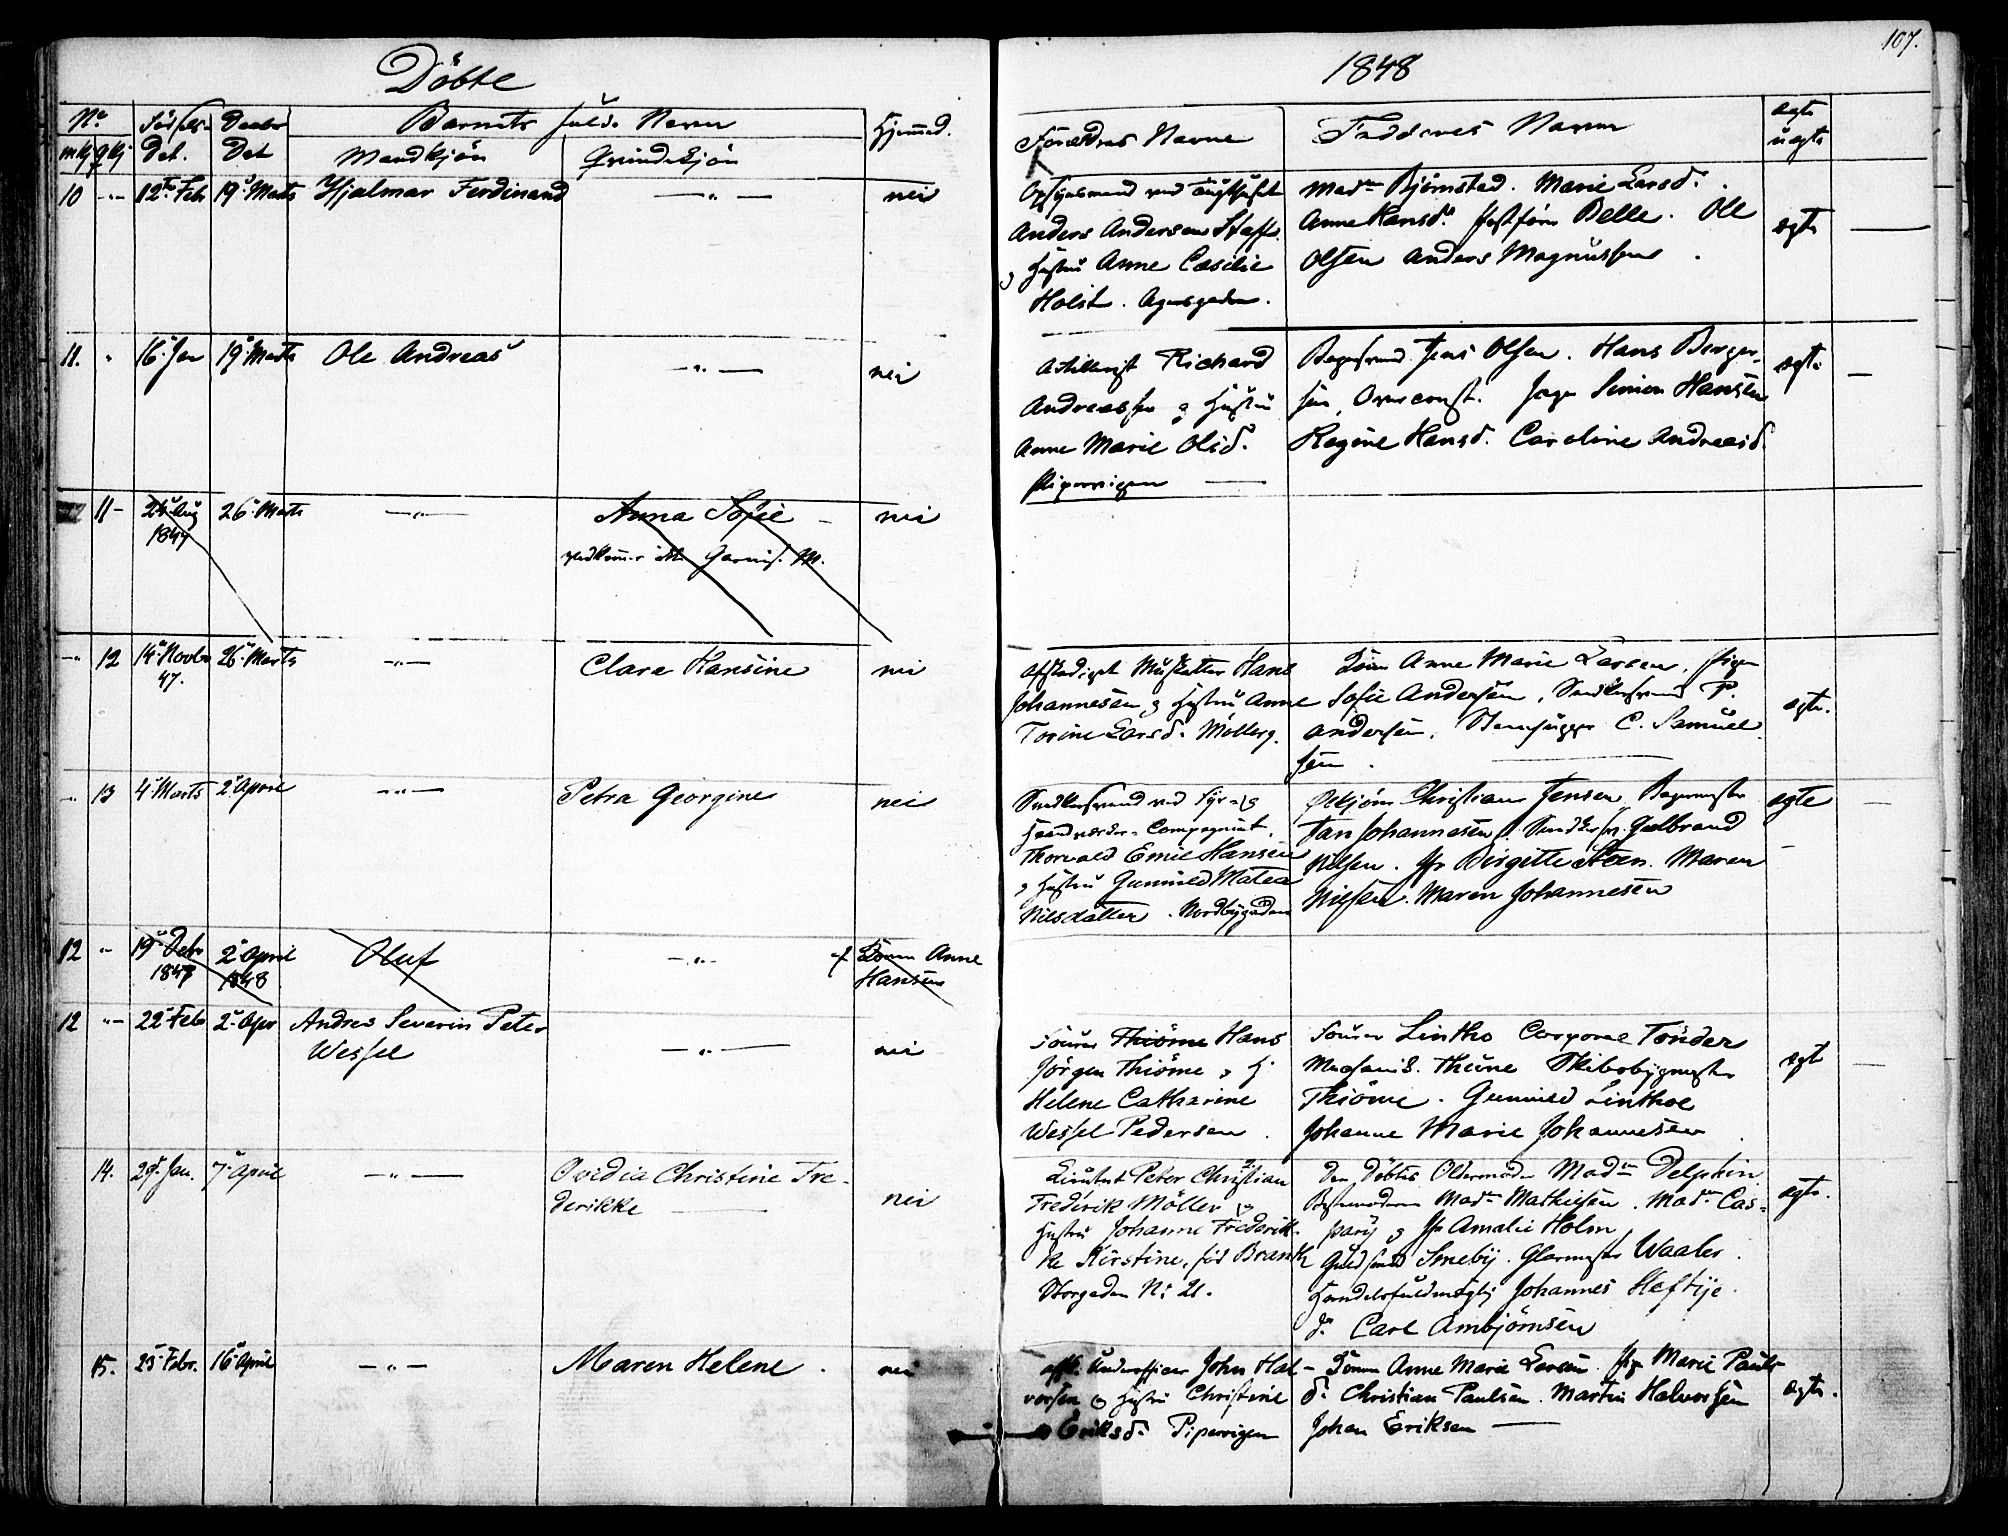 107.
Döbte
1848
No
Födsels-
Daabs
Barnets fulde Navn
Hjemmed.
Forældres Navne
Faddernes Navne
ægte
mkj qkj
Dat.
Dat
Mandkjön
Qvindekjön
uægte
10 -"- 12te Feb 19 Marts Hjalmar Ferdinand — " — nei
Opsynsmand ved Tugthuset
Anders Andersen
Hustru Anne Cæsilie
Holst. Agersgaden.
Madm Björnstad. Marie Larsd.
Anne Hansd. Belle. Ole
Olsen Anders Magnussen
ægte
11. " 16 Jan 19 Marts Ole Andreas — " — nei
Artillerist Richard
Andreassen og Hustru
Anne Marie Olsd.
Pipervigen
Jens Olsen. Hans Berger-
sen, Simon Hansen
Regine Hansd. Caroline Andreasd.
ægte
11 - 24 Aug 26 Marts — " — Anna Sofie - nei
1847
vedkommer ikke Garnis. M.
-"- 12 14 Novbr 26 Marts — " — Clara Hansine nei
47.
Afskediget Musketter Hans
Johannesen og Hustru Anne
Torine Larsd. Möllerg.
Anne Marie Larsen. Pige
Sofie Andersen, Snedkersvend P.
Andersen, Steenhugger C. Samuel
sen.
ægte.
" 13 4 Marts 2 April — " — Petra Georgine nei
Snedkersvend ved Fyr- og
Haandværks-Compagniet,
Thorvald Emil Hansen
og Hustru Gunnild Matea
Nilsdatter. Nordbygaden
Christian Jensen, Bagermester
Jan Johannesen. Snedkersv. Gulbrand
Nilsen. Jfr Birgitte Steen. Maren
Nilsen. Maren Johannesen
ægte
12 " 19 Debr 2 April Oluf — " — Anne
1847 1848 Hansen
12 "- 22 Feb 2 Apr Andres Severin Peter
Wessel — " — nei
Fourer Thiöme Hans
Jörgen Thiöme og H
Helene Catharine
Wessel Pedersen.
Fourer Linthoe Corporal Tönder
Mechanik. Thune Skibsbygmester
Thiöme. Gunnild Linthoe
Johanne Marie Johannesen
ægte
14. 29. Jan. 7 April — " — Ovidia Christine Fre-
derikke nei
Lieutnt Peter Christian
Frederik Möller og
Hustru Johanne Frederik-
ke Kirstine, föd Brandt
Storgaden No 21.
Den Döbtes Oldemoder Madm Delphin
Bestemoderen Madm Mathiesen. Madm Cas-
pary og Jfr Amalie Holm
Guldsmed Smeby. Glarmester Waaler.
Handelsfuldmægtig Johannes Heftye.
do Carl Ambjörnsen
ægte.
15. 25 Febr. 16 April — " — Maren Helene. nei
afsk. Underofficer John Hal-
vorsen og Hustru Christine
Eriksd. Pipervigen
Anne Marie Larsen. Pige Marie Pauls-
d. Christian Paulsen. Martin Halvorsen
Johan Eriksen —
ægte.